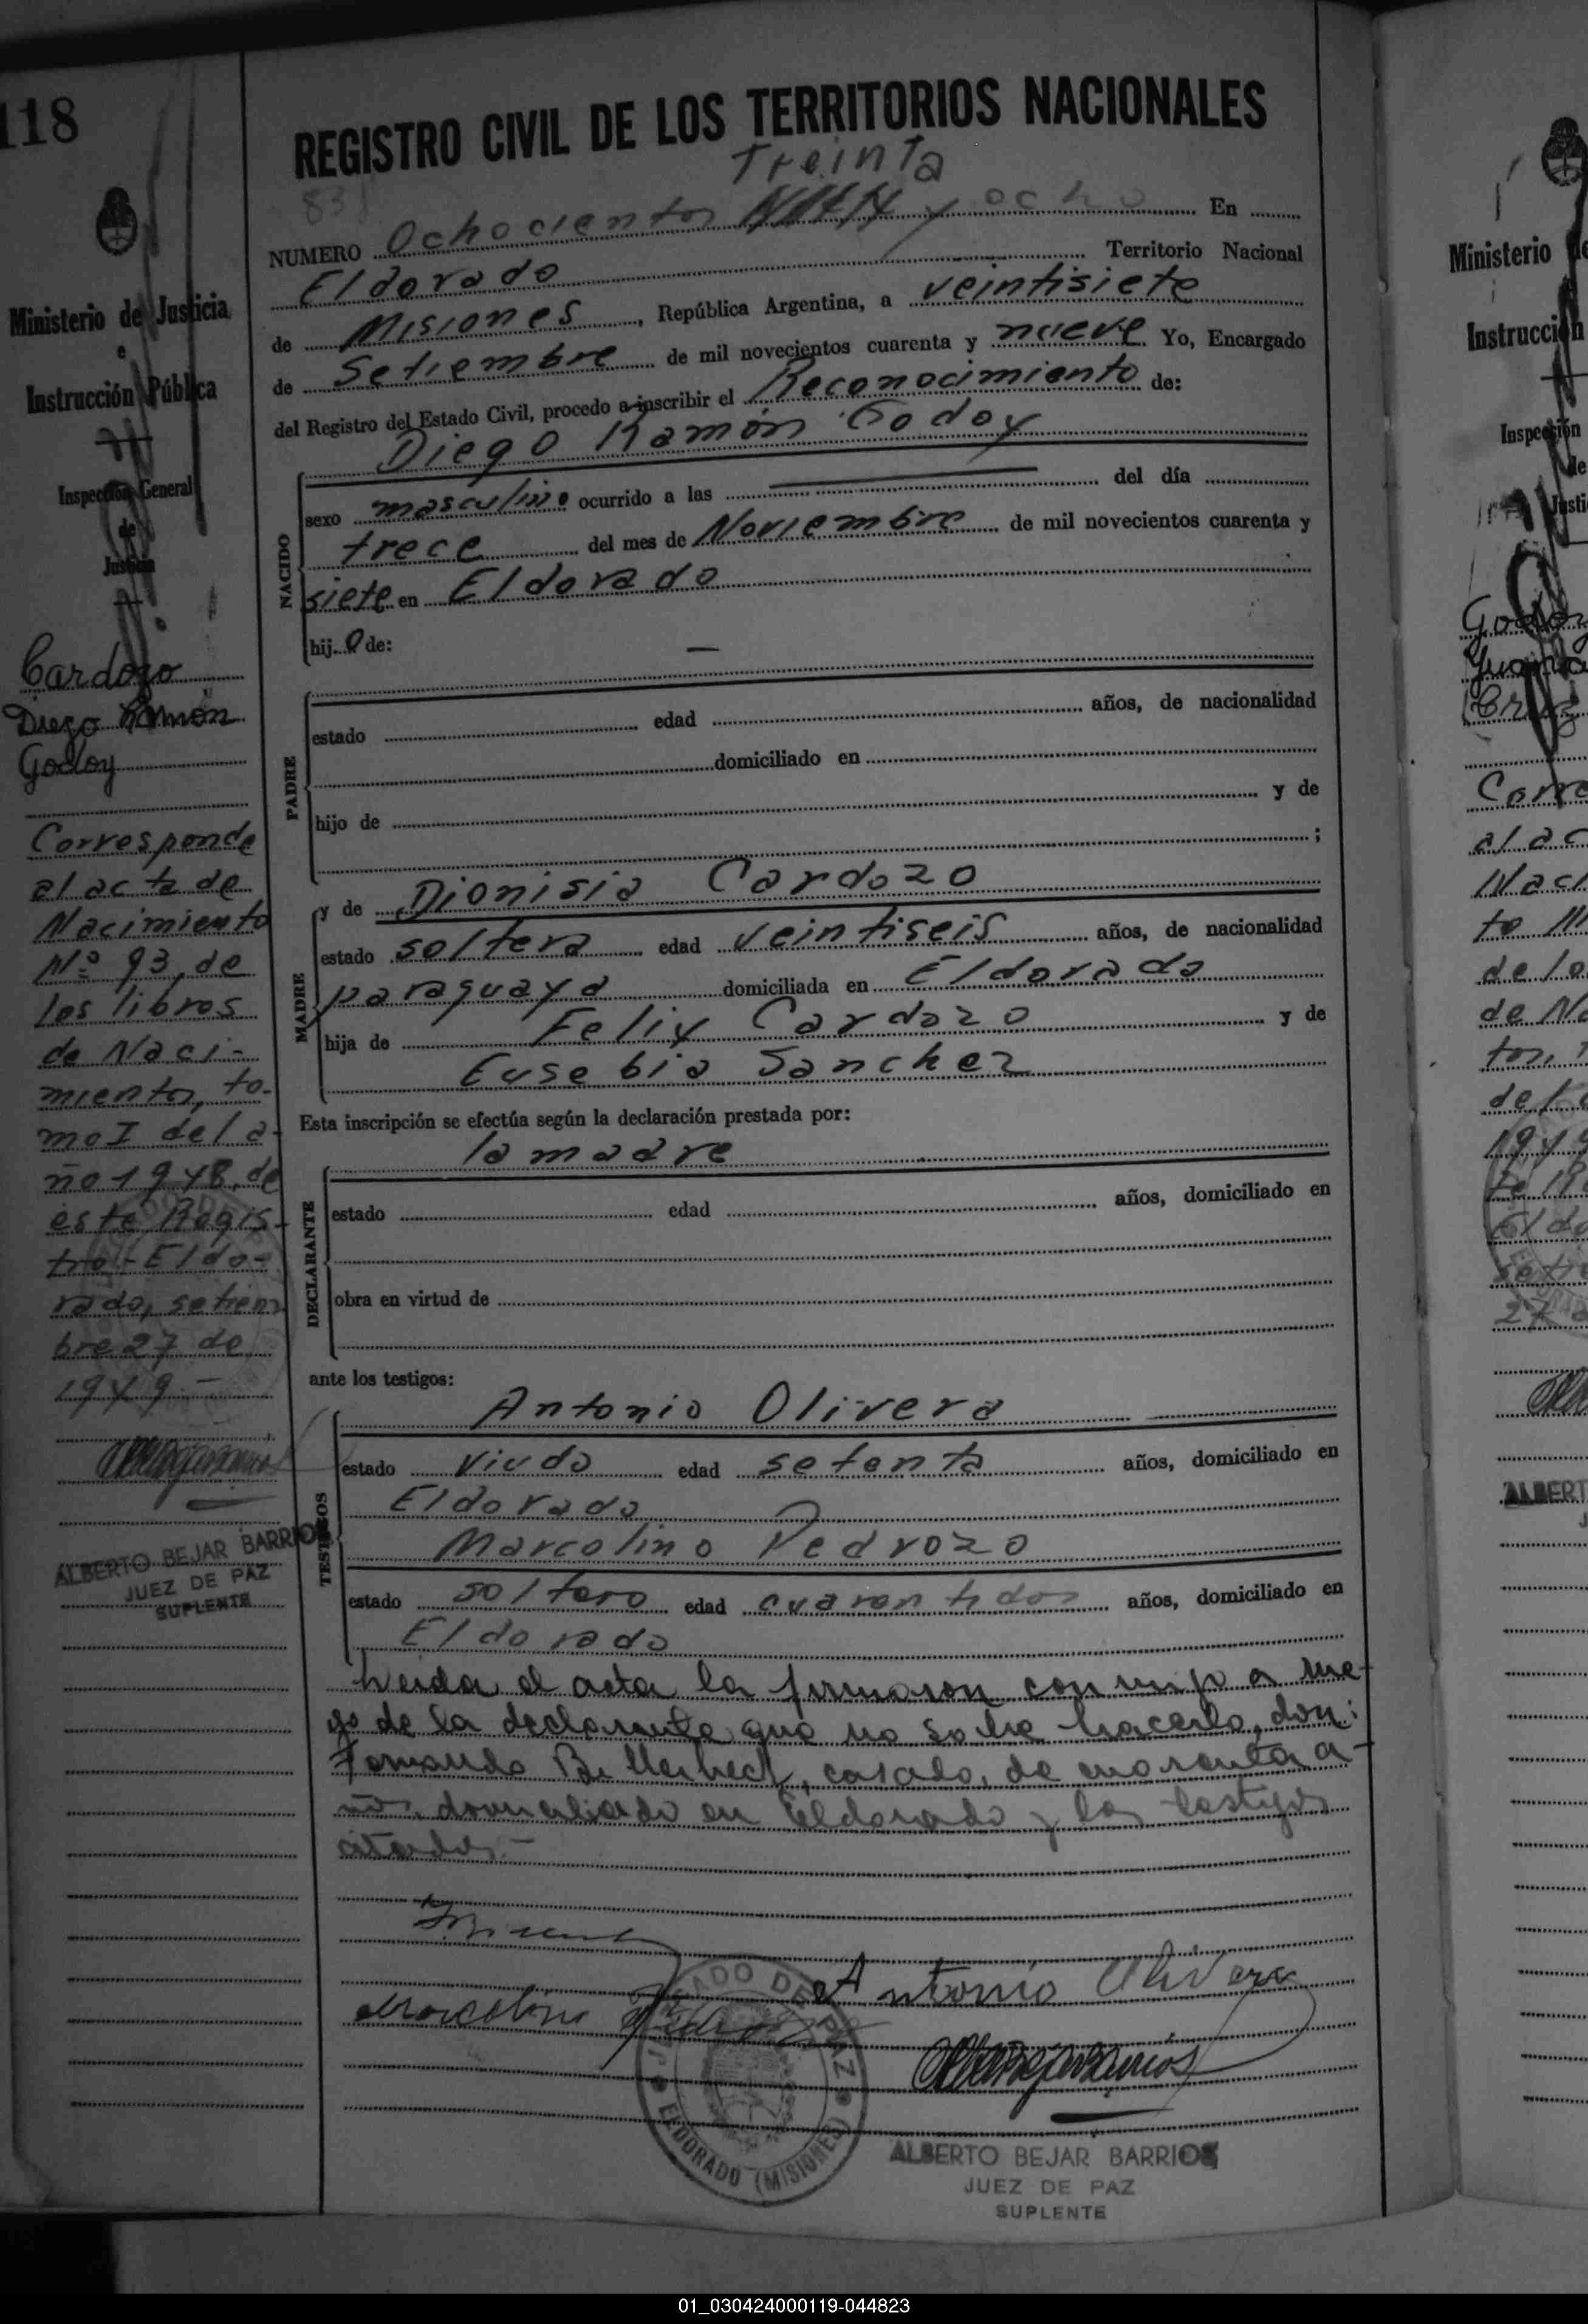 118
REGISTRO CIVIL DE LOS TERRITORIOS NACIONALES
Treinta
83
NUMERO Ochocientos y ocho En
Eldorado Territorio Nacional
de Misiones, República Argentina, a veintisiete
de Setiembre de mil novecientos cuarenta y nueve Yo, Encargado
del Registro del Estado Civil, procedo a inscribir el Reconocimiento de:
Diego Ramón Godoy
NACIDO
sexo masculino ocurrido a las del día
trece del mes de Noviembre de mil novecientos cuarenta y
siete en Eldorado
hijo de: —
PADRE
estado edad años, de nacionalidad
domiciliado en
hijo de y de
;
MADRE
y de Dionisia Cardozo
estado soltera edad veintiseis años, de nacionalidad
paraguaya domiciliada en Eldorado
hija de Felix Cardozo y de
Eusebia Sanchez
Esta inscripción se efectúa según la declaración prestada por:
la madre
DECLARANTE
estado edad años, domiciliado en
obra en virtud de
ante los testigos:
TESTIGOS
Antonio Olivera
estado viudo edad setenta años, domiciliado en
Eldorado
Marcolino Pedrozo
estado soltero edad cuarentidos años, domiciliado en
Eldorado
Leida el acta la firmaron conmigo a rue-
go de la declarante que no sabe hacerlo, don:
casado, de cuarenta a-
ños, domiciliado en Eldorado y los testigos
citados.-
Antonio Olivera
Marcolino Pedrozo
JUZGADO DE PAZ
ELDORADO (MISIONES)
ALBERTO BEJAR BARRIOS
JUEZ DE PAZ
SUPLENTE
Ministerio de Justicia
e
Instrucción Pública
Inspección General
de
Justicia
Cardozo
Diego Ramón
Godoy
Corresponde
al acta de
Nacimiento
Nº 93, de
los libros
de Naci-
mientos, to-
mo I del a-
ño 1948, de
este Regis-
tro.- Eldo-
rado, setiem
bre 27 de
1949.-
ALBERTO BEJAR BARRIOS
JUEZ DE PAZ
SUPLENTE
Ministerio de
Instrucción
Inspección
de
Justi
Godoy
Juana
Corre
al ac
Naci
to
de lo
de Na
tos,
del a
1949
te Re
Eldo
setie
27 d
ALBERT
J
01_030424000119-044823